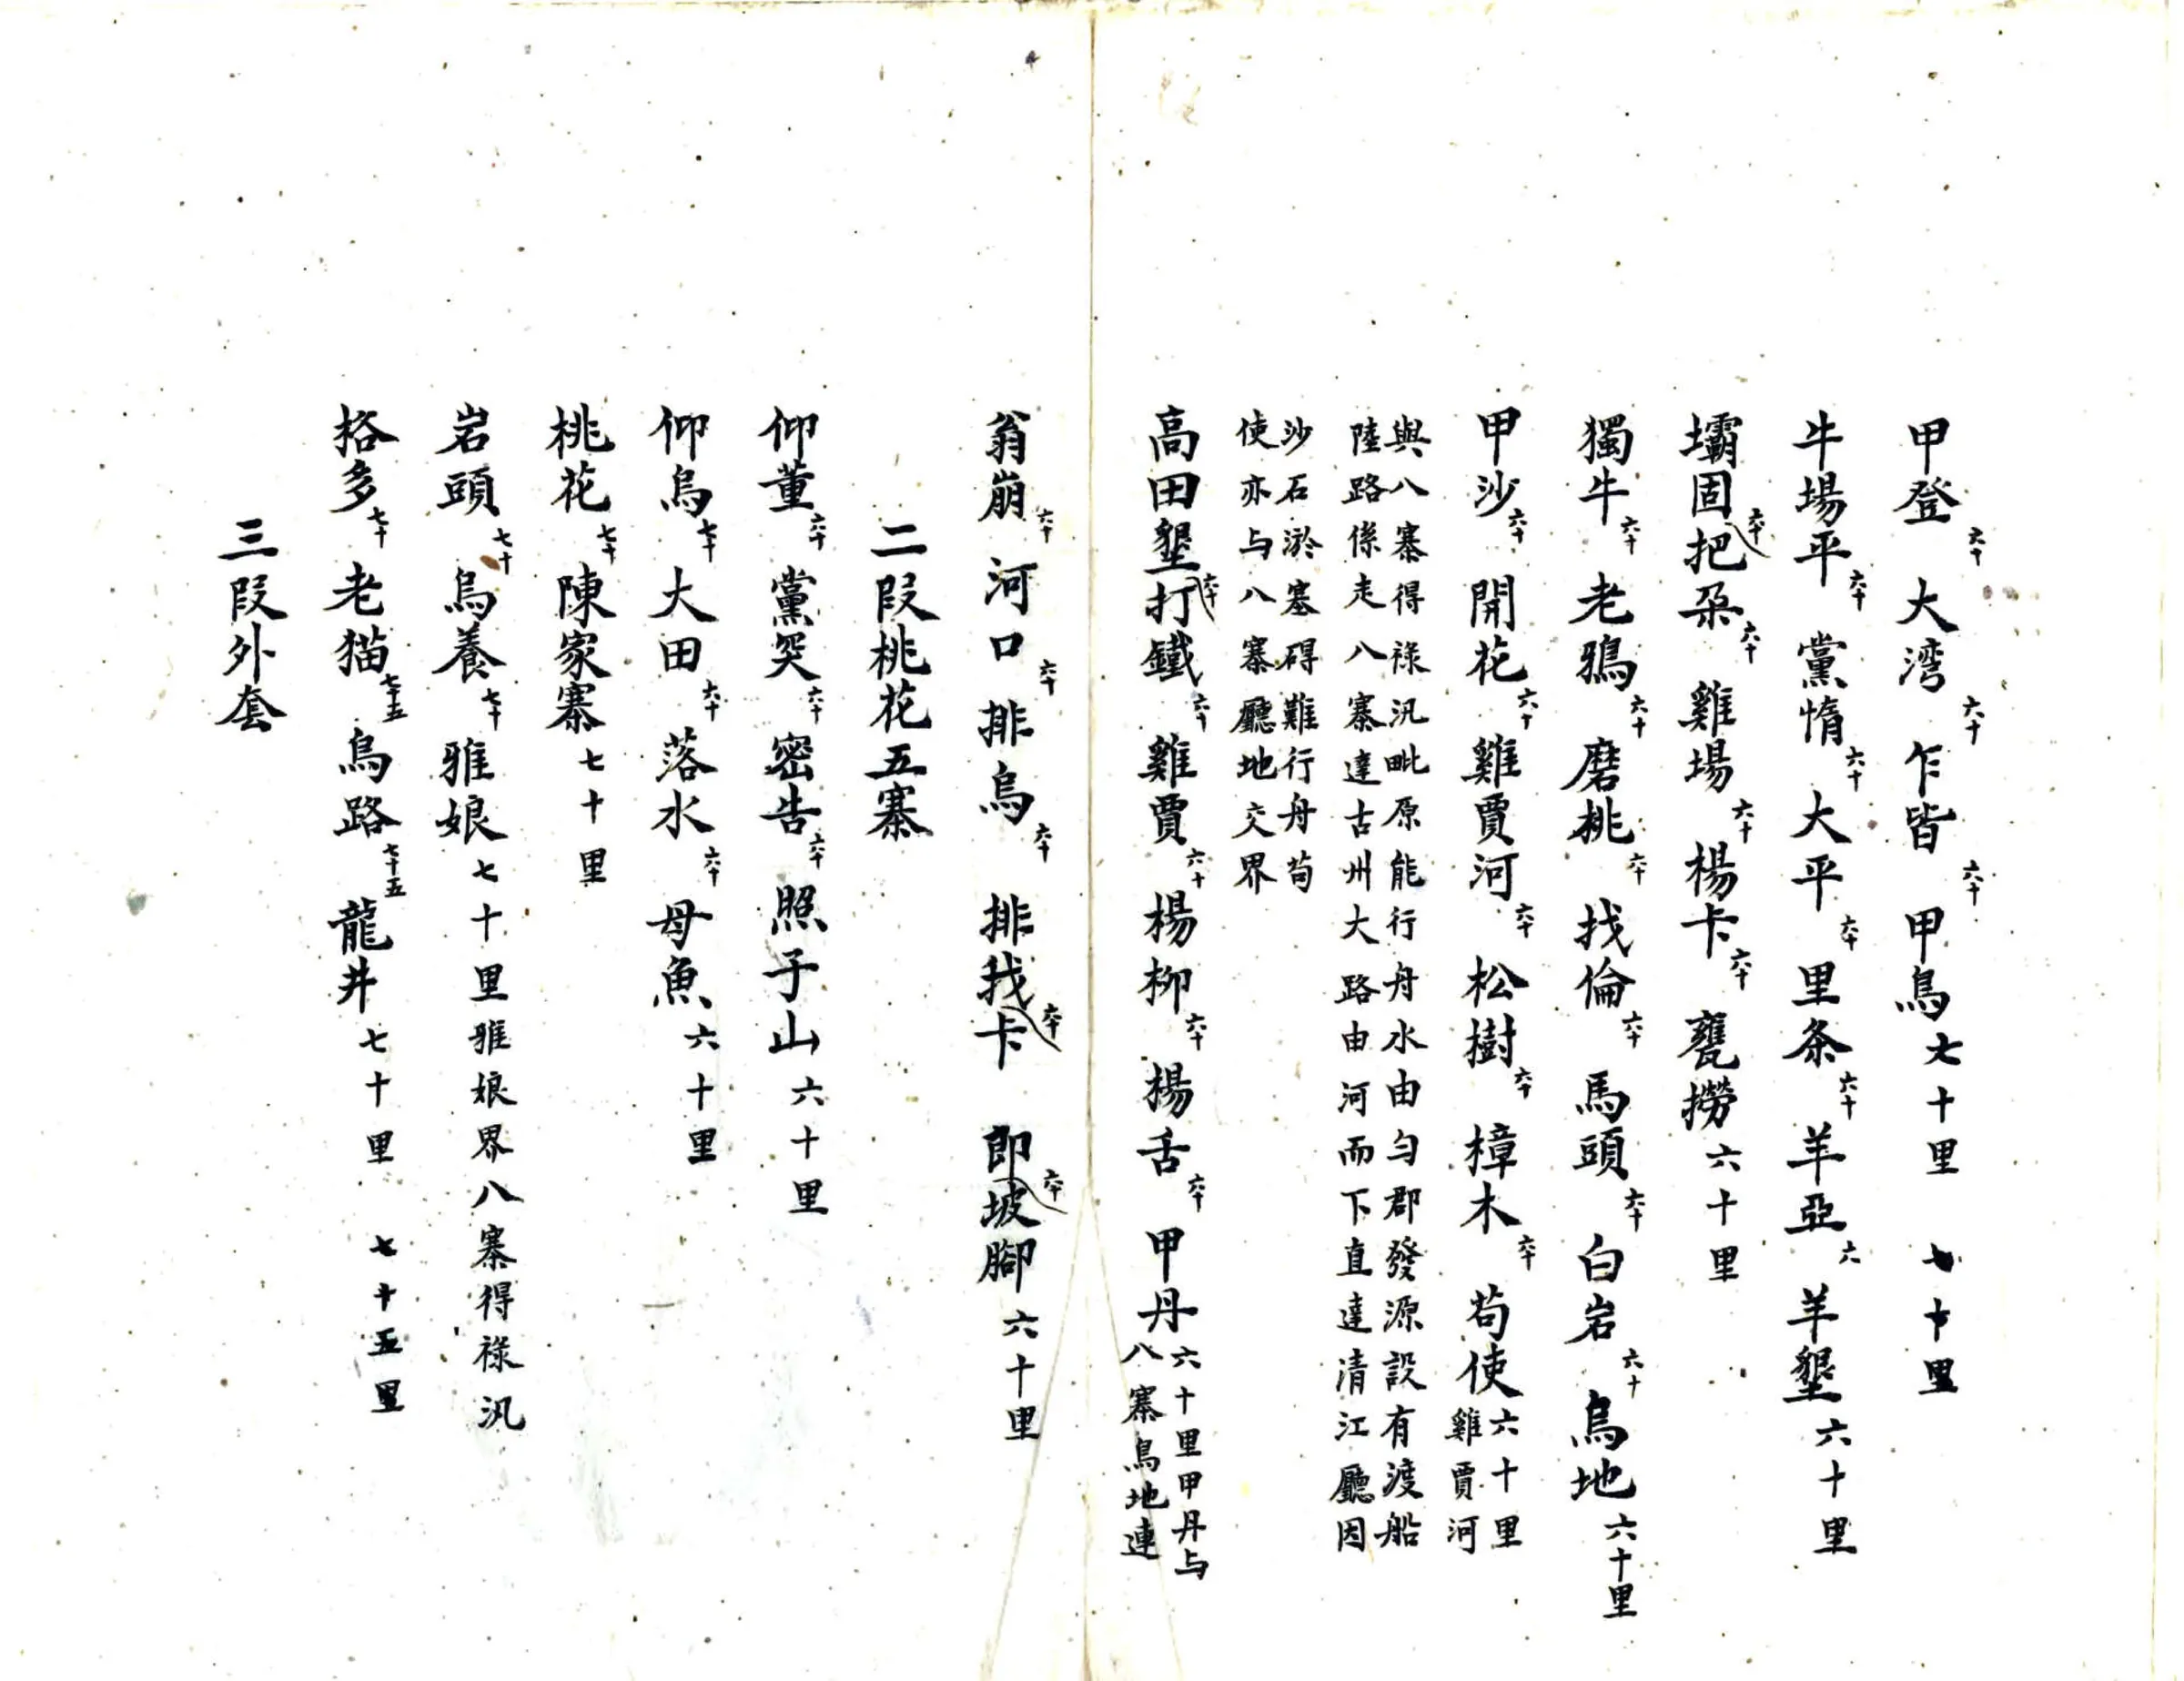 甲登六十 大湾六十 乍皆六十 甲鳥七十里 七十里
牛場平六十 黨惰六十 大平六十 里条六十 羊亞六 羊墾六十里
壩固六十 把朶六十 雞場六十 楊卡六十 甕撈六十里
獨牛六十 老鴉六十 磨桃六十 找倫六十 馬頭六十 白岩六十 烏地六十里
甲沙六十 開花六十 雞賈河六十 松樹六十 樟木六十 苟使六十里 雞賈河
與八寨得祿汛毗原能行舟水由勻郡發源設有渡船
陸路係走八寨達古州大路由河而下直達清江廳因
沙石淤塞碍難行舟苟
使亦与八寨廳地交界
高田墾六十 打鐵六十 雞賈六十 楊柳六十 楊舌六十 甲丹六十里甲丹与
八寨鳥地連
翁崩六十 河口六十 排烏六十 排找六十 卡 即六十 坡腳六十里
二叚桃花五寨
仰董六十 黨哭六十 密告六十 照子山六十里
仰烏七十 大田六十 落水六十 母魚六十里
桃花七十 陳家寨七十里
岩頭七十 烏養七十 雅娘七十里雅娘界八寨得祿汛
挌多七十 老猫七十五 烏路七十五 龍井七十里 七十五里
三叚外套